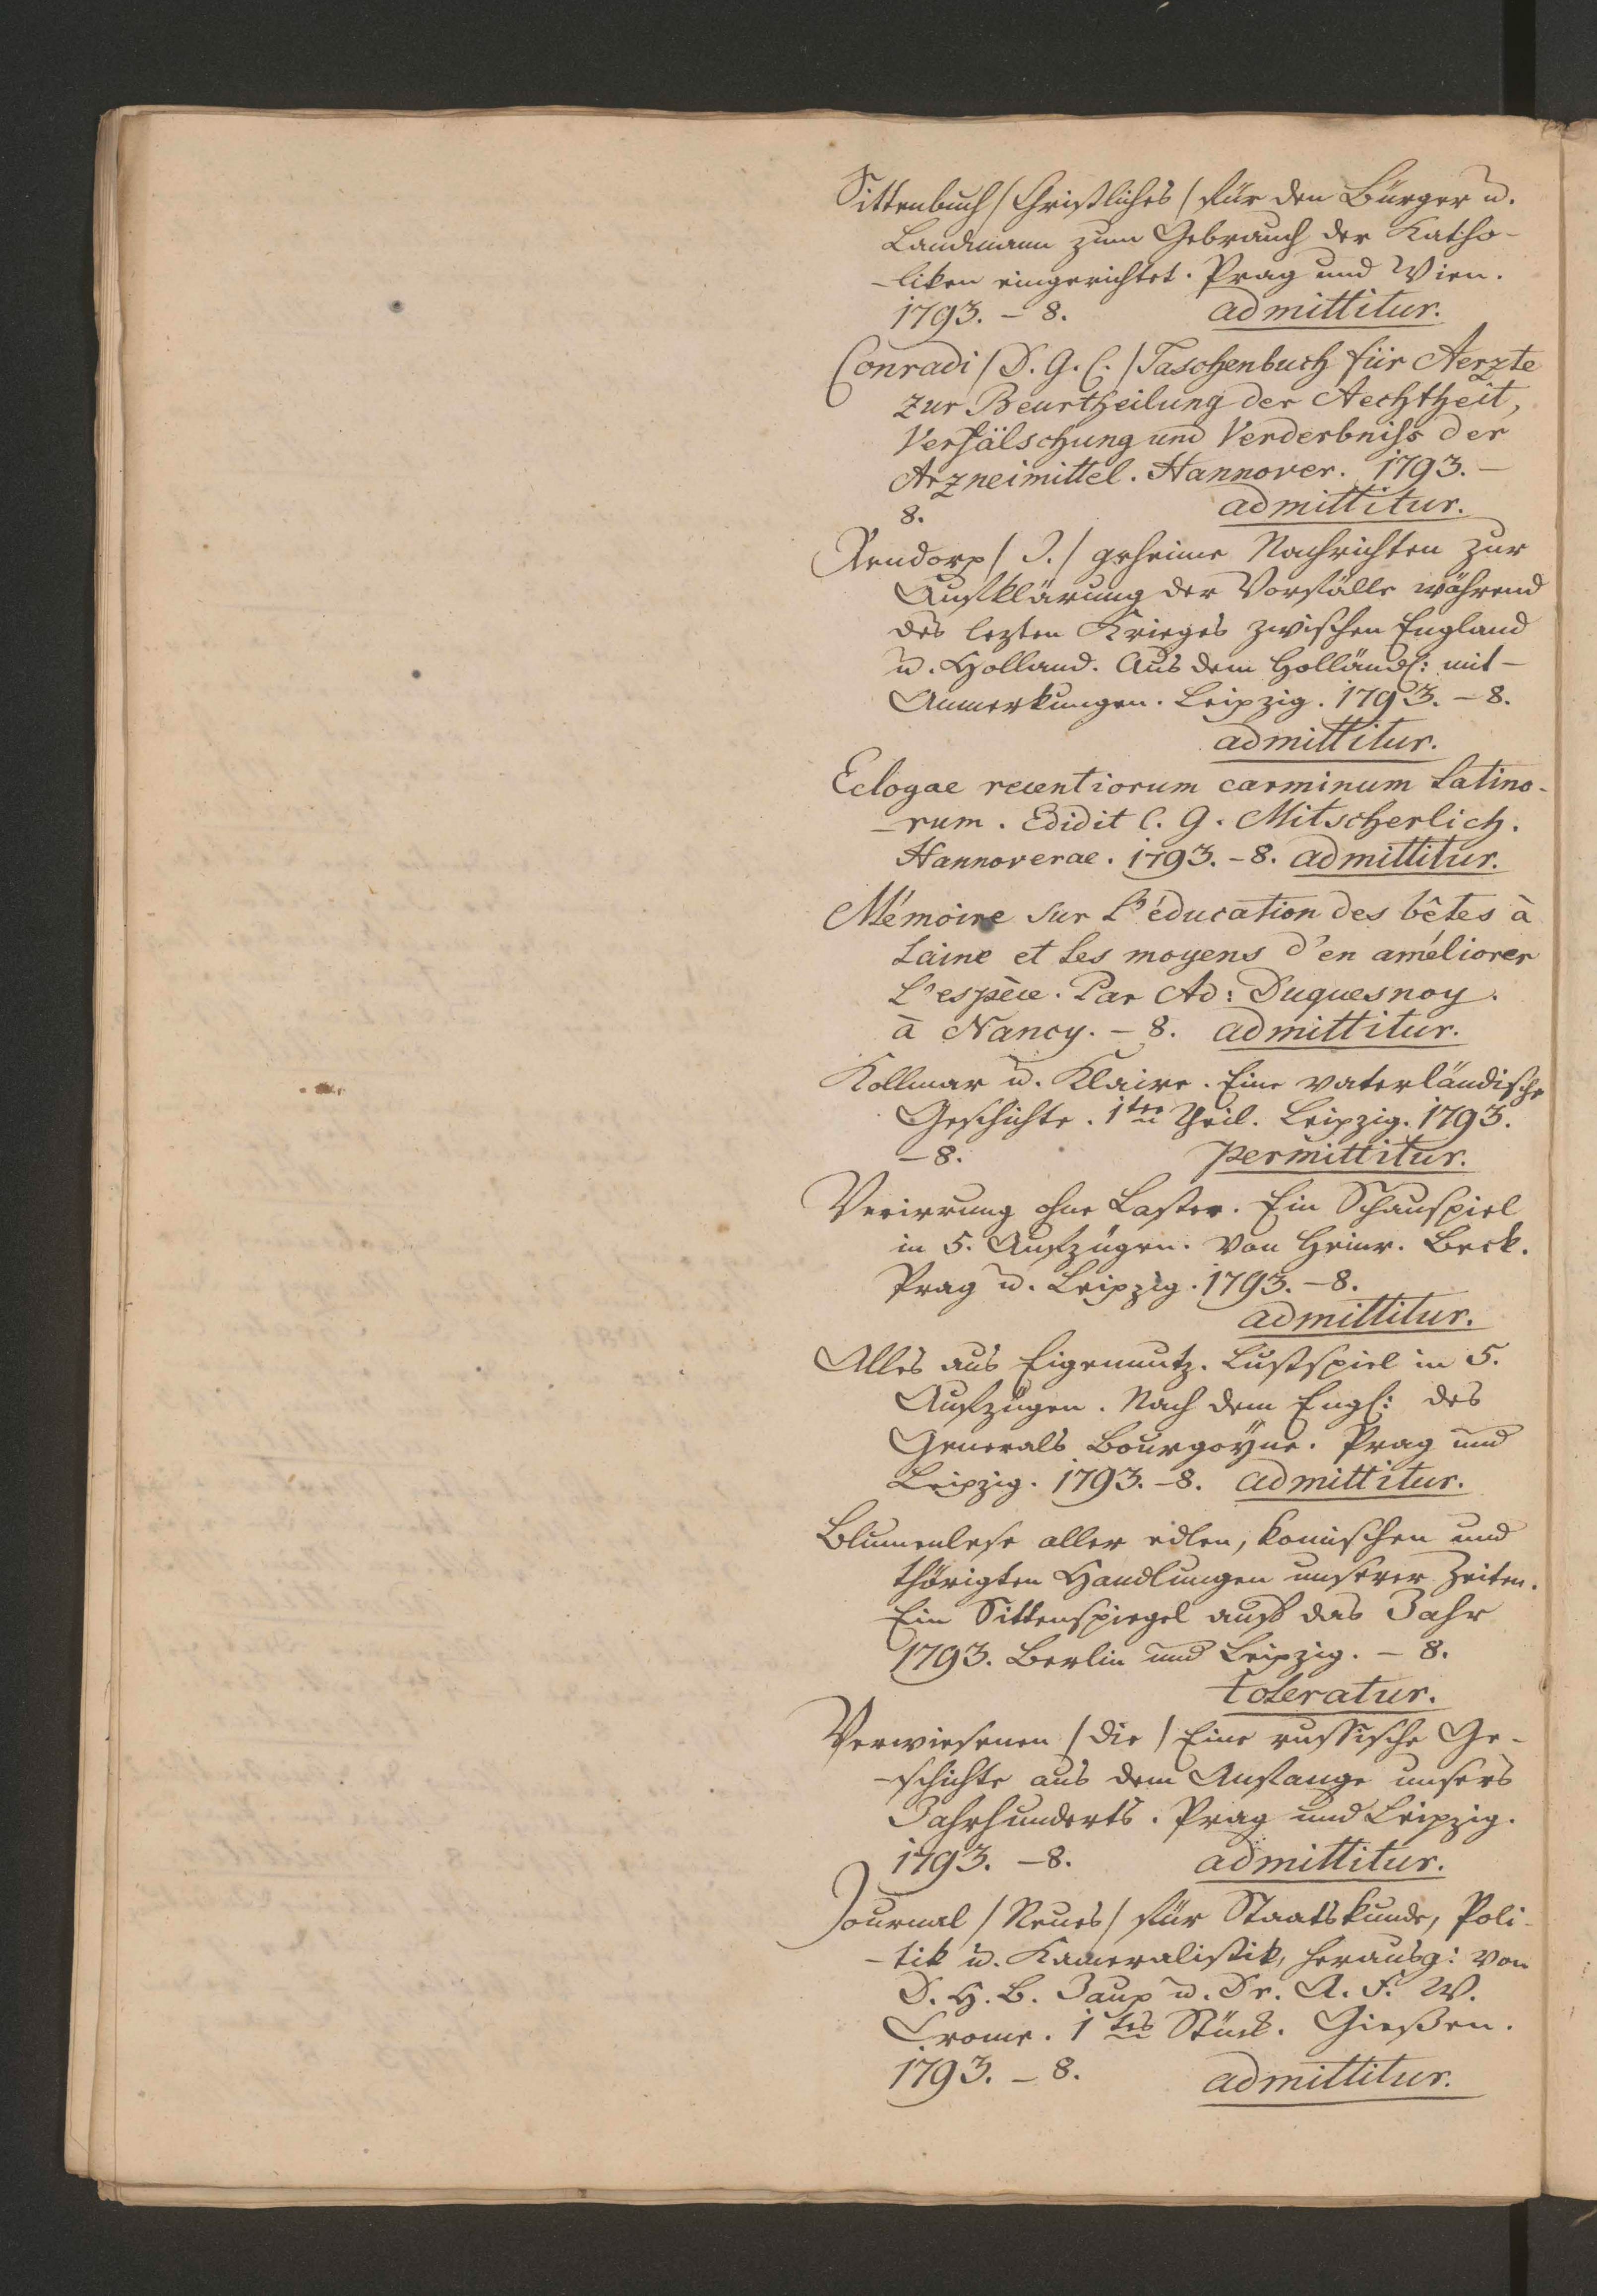 Sittenbuch /Christliches/ für den Bürger u.
Landmann zum Gebrauch der Katho-
-liken eingerichtet. Prag und Wien.
1793. - 8. admittitur.
Conradi /D. G. C./ Taschenbuch für Aerzte
zur Beurtheilung der Aechtheit,
Verfälschung und Verderbniss der
Arzneimittel. Hannover. 1793. -
8. admittitur.
Rendorp /J./ geheime Nachrichten zur
Aufklärung der Vorfälle während
des lezten Krieges zwischen England
u. Holland. Aus dem Holländ: mit -
Anmerkungen. Leipzig. 1793. - 8.
admittitur.
Eclogae recentiorum carminum Latino-
-rum. Edidit C. G. Mitscherlich.
Hannoverae. 1793. - 8. admittitur.
Mémoire sur L'éducation des bêtes à
Laine et les moyens d'en améliorer
L'espèce. Par Ad: Duquesnoy.
à Nancy. - 8. admittitur.
Kollmar u. Klaire. Eine vaterländische
Geschichte. 1ter Theil. Leipzig. 1793.
- 8. permittitur.
Verirrung ohne Laster. Ein Schauspiel
in 5. Aufzügen. Von Heinr. Beck.
Prag u. Leipzig. 1793. - 8.
admittitur.
Alles aus Eigennutz. Lustspiel in 5.
Aufzügen. Nach dem Engl: des
Generals Bourgoyne. Prag und
Leipzig. 1793. - 8. admittitur.
Blumenlese aller edlen, komischen und
thörigten Handlungen unserer Zeiten.
Ein Sittenspiegel auf das Jahr
1793. Berlin und Leipzig. - 8.
toleratur.
Verwiesenen /die/ Eine russische Ge-
-schichte aus dem Anfange unsers
Jahrhunderts. Prag und Leipzig.
1793. - 8. admittitur.
Journal /Neues/ für Staatskunde, Poli-
-tik u. Kameralistik, herausg: von
D. H. B. Jaup u. Dr. A. F. W.
Crome. 1tes Stück. Gießen.
1793. - 8. admittitur.